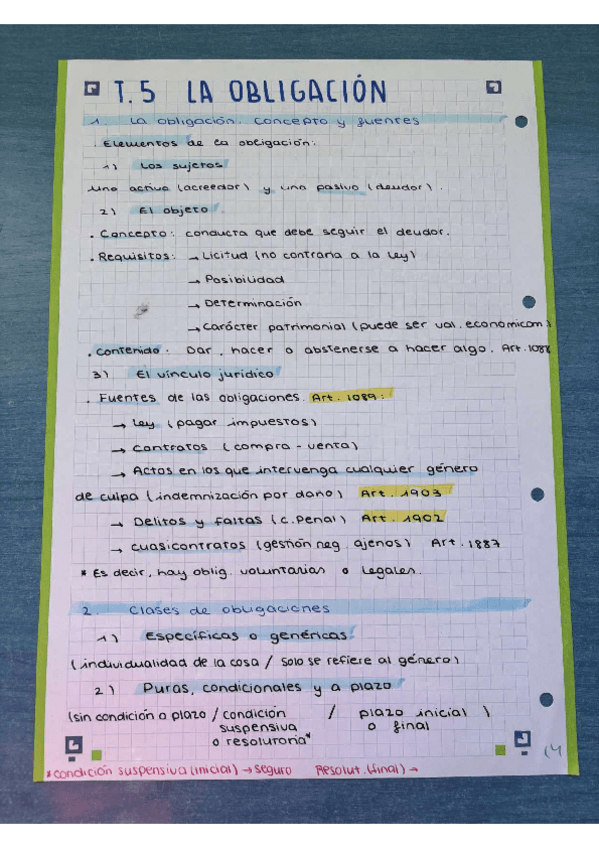 T.5 LA OBLIGACIÓN
1. La obligación. Concepto y fuentes
. Elementos de la obligación:
1) Los sujetos
Uno activo (acreedor) y uno pasivo (deudor).
2) El objeto
. Concepto: conducta que debe seguir el deudor.
. Requisitos: → Licitud (no contraria a la ley)
→ Posibilidad
→ Determinación
→ Carácter patrimonial (puede ser val. económicam)
. Contenido: Dar, hacer o abstenerse a hacer algo. Art. 1088
3) El vínculo jurídico
. Fuentes de las obligaciones. Art. 1089:
→ Ley (pagar impuestos)
→ Contratos (compra-venta)
→ Actos en los que intervenga cualquier género
de culpa (indemnización por daño) Art. 1903
→ Delitos y faltas (C.Penal) Art. 1902
→ Cuasicontratos (gestión neg. ajenos) Art. 1887
* Es decir, hay oblig. voluntarias o legales.
2. Clases de obligaciones
1) Específicas o genéricas
(individualidad de la cosa / solo se refiere al género)
2) Puras, condicionales y a plazo
(sin condición o plazo / condición / plazo inicial )
suspensiva o final
o resoluroria*
*condición suspensiva (inicial) → seguro Resolut. (final) →